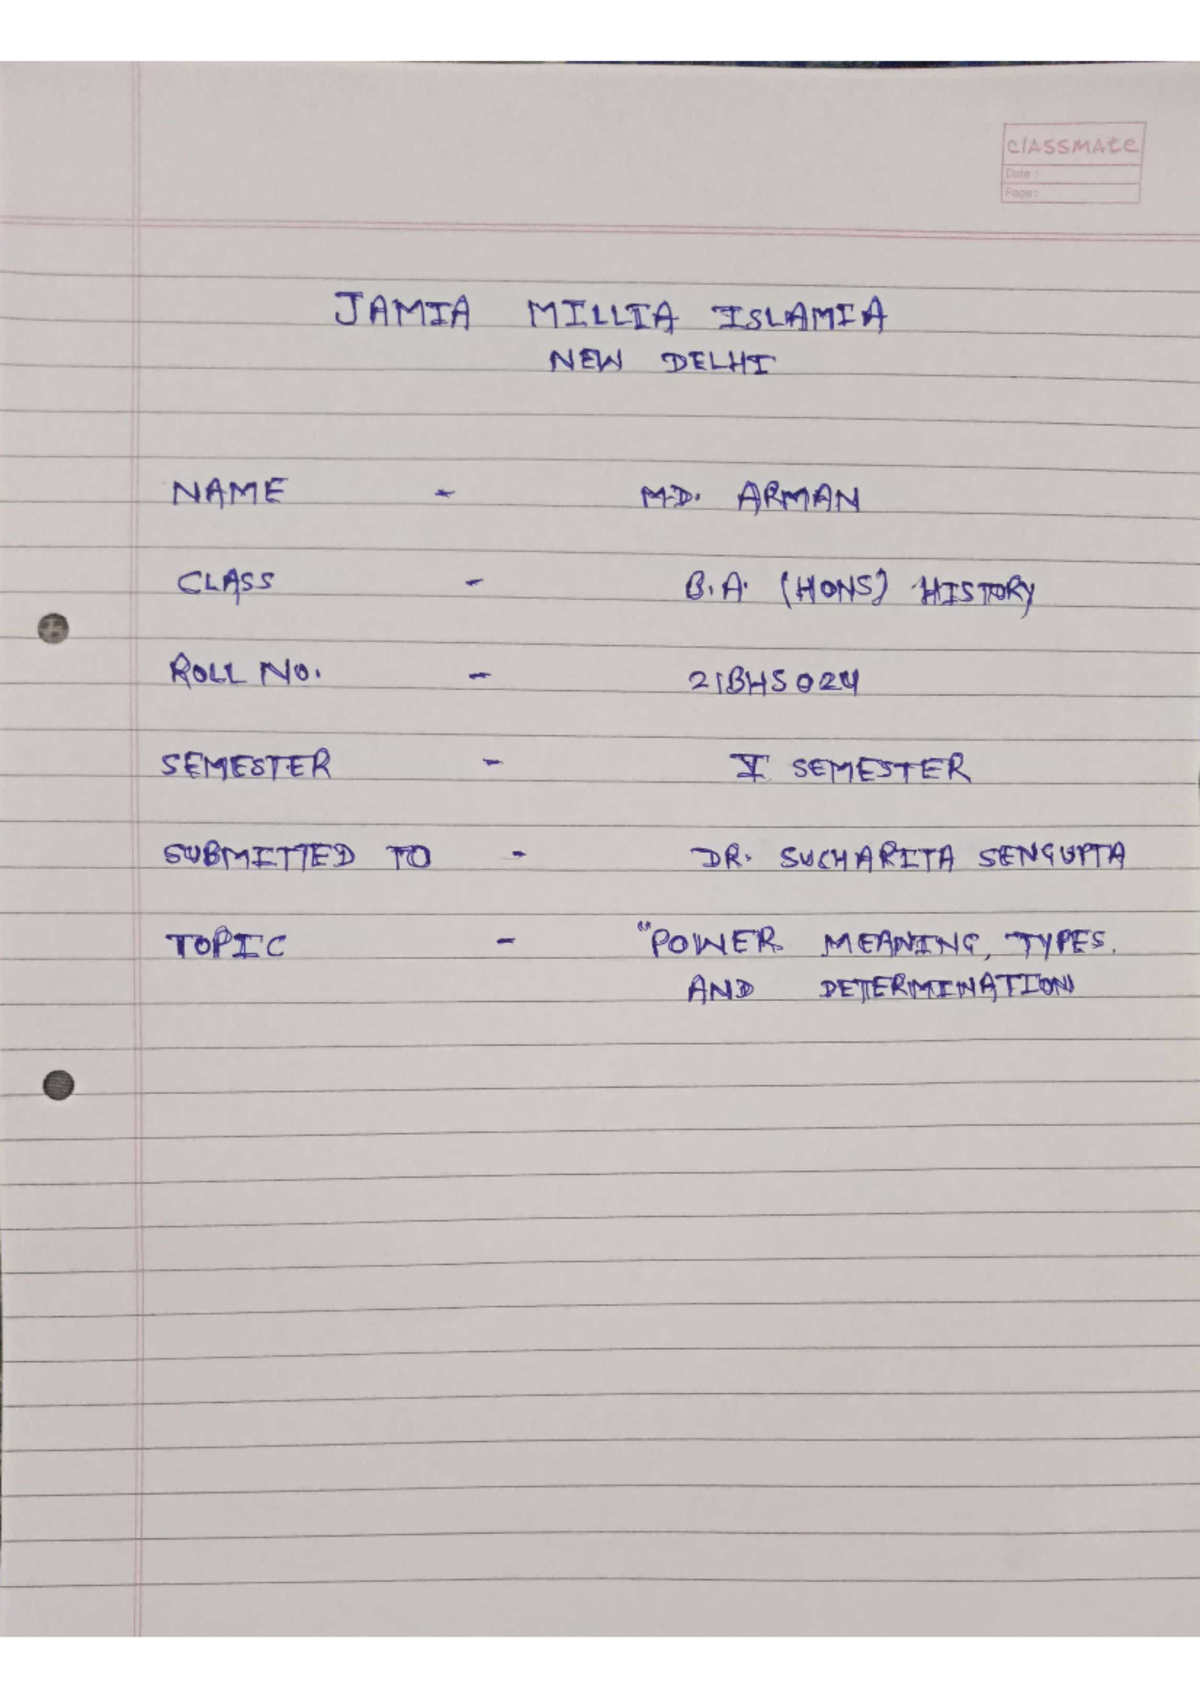 classmate
Date :
Page :
JAMIA MILLIA ISLAMIA
NEW DELHI
NAME - MD. ARMAN
CLASS - B.A. (HONS) HISTORY
ROLL NO. - 21BHS024
SEMESTER - V SEMESTER
SUBMITTED TO - DR. SUCHARITA SENGUPTA
TOPIC - "POWER MEANING, TYPES.
AND DETERMINATION